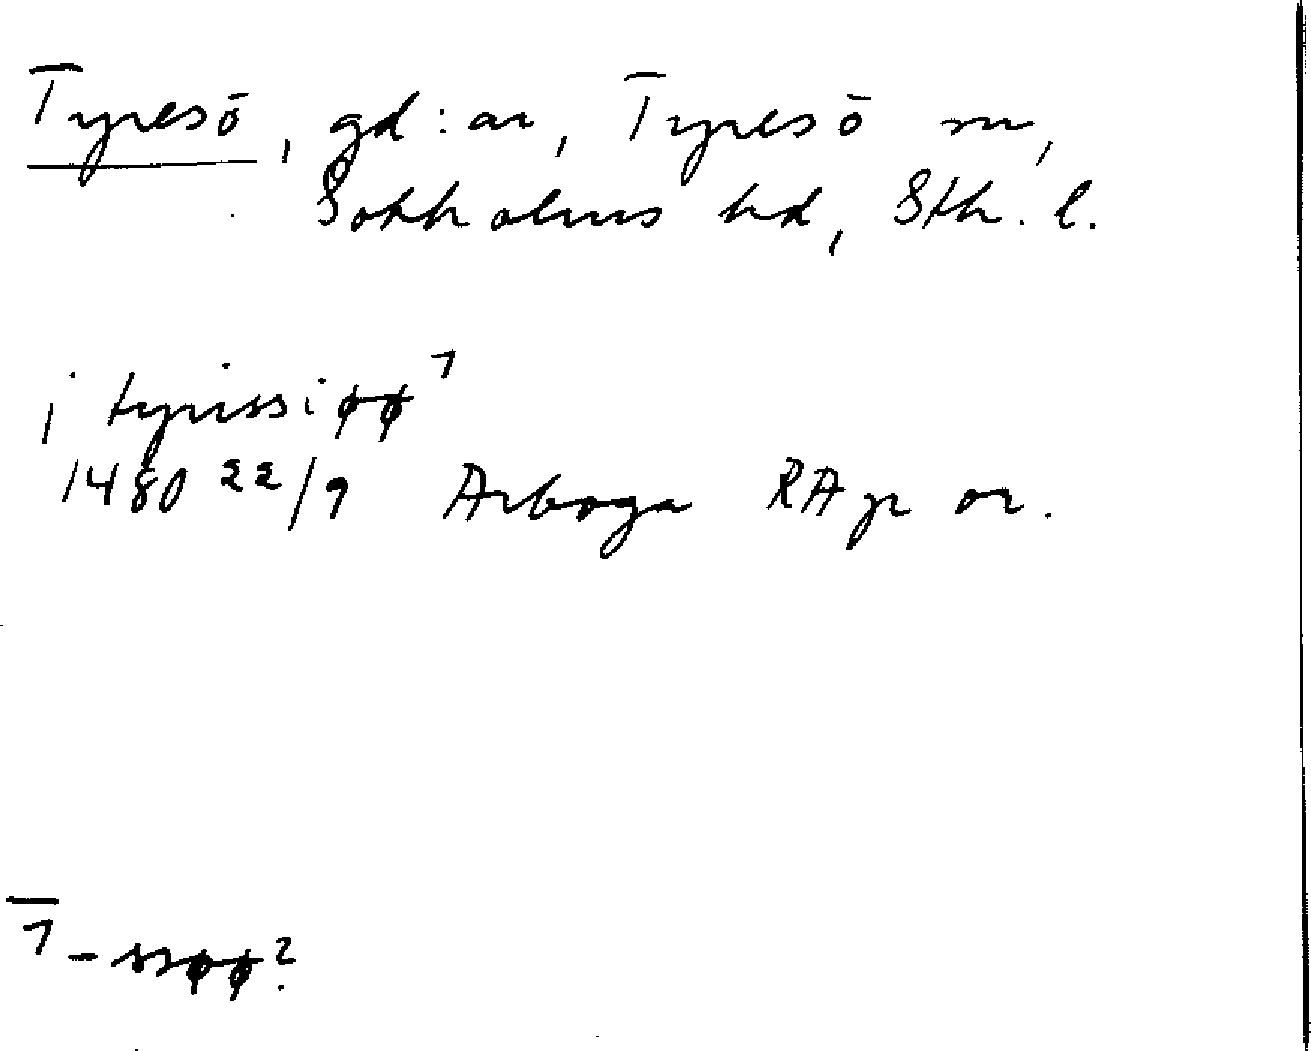 Tyresö, gd:ar, Tyresö sn,
Sotholms hd, Sth. l.
i tyrissiøø¹
1480 22/9 Arboga RAp or.
¹ -ssøø?